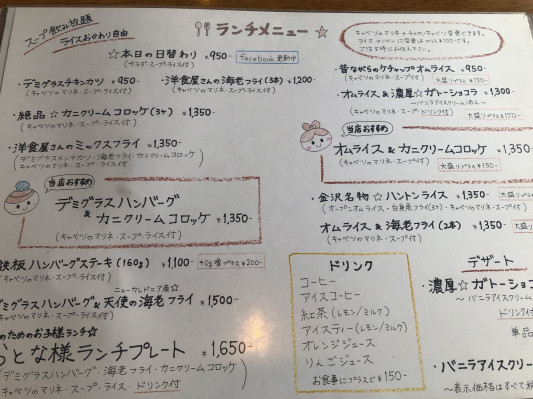 スープ飲み放題
ライスおかわり自由
ランチメニュー
☆本日の日替わり ¥950-
facebook更新中
(サラダ・スープ・ライス付)
・デミグラスチキンカツ ¥950-
(キャベツのマリネ・スープ・ライス付)
・洋食屋さんの海老フライ(3本) ¥1,200-
(キャベツのマリネ・スープ・ライス付)
・絶品☆カニクリームコロッケ(3ヶ) ¥1,350-
(キャベツのマリネ・スープ・ライス付)
・洋食屋さんのミックスフライ ¥1,350-
(デミグラスメンチカツ・海老フライ・カニクリームコロッケ
キャベツのマリネ・スープ・ライス付)
当店おすすめ
デミグラスハンバーグ
& カニクリームコロッケ ¥1,350-
(キャベツのマリネ・スープ・ライス付)
鉄板ハンバーグステーキ(160g) ¥1,100-
40g増プラス¥200-
(キャベツのマリネ・スープ・ライス付)
ニューカレドニア産☆
デミグラスハンバーグ& 天使の海老フライ ¥1,500-
(キャベツのマリネ・スープ・ライス付)
のためのお子様ランチ☆
おとな様ランチプレート ¥1,650-
(デミグラスハンバーグ・海老フライ・カニクリームコロッケ
キャベツのマリネ・スープ・ライス・ドリンク付)
・昔ながらのケチャップオムライス ¥950-
(キャベツのマリネ・スープ付)
大盛りプラス¥150-
・オムライス & 濃厚☆ガトーショコラ ¥1,300-
〜バニラアイスクリーム添え〜
(キャベツのマリネ・スープ・ドリンク付)
大盛りプラス¥150-
当店おすすめ
オムライス & カニクリームコロッケ ¥1,350-
(キャベツのマリネ・スープ付)
大盛りプラス¥150-
・金沢名物☆ハントンライス ¥1,350-
(オープンオムライス・白身魚フライ(3ヶ)・キャベツのマリネ・スープ付)
オムライス & 海老フライ(2本) ¥1,350-
(キャベツのマリネ・スープ付)
ドリンク
コーヒー
アイスコーヒー
紅茶(レモン/ミルク)
アイスティー(レモン/ミルク)
オレンジジュース
りんごジュース
お食事にプラスで¥150-
デザート
・濃厚☆ガトーショコラ
〜バニラアイスクリーム
ドリンク付
単品
・バニラアイスクリー
〜表示価格はすべて税